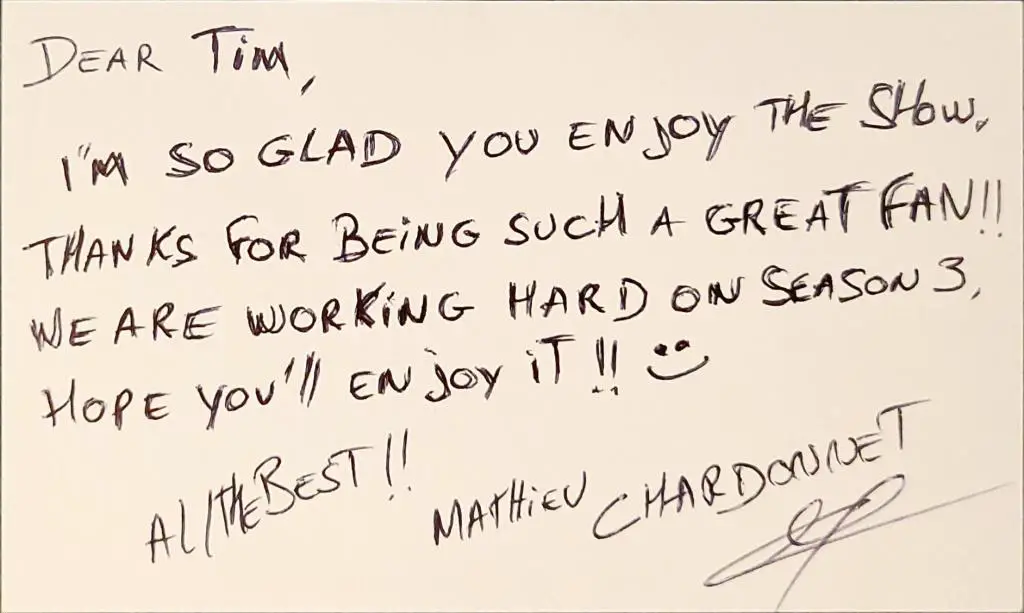 DEAR TIM,
I'M SO GLAD YOU ENJOY THE SHOW.
THANKS FOR BEING SUCH A GREAT FAN!!
WE ARE WORKING HARD ON SEASON 3,
HOPE YOU'll ENJOY IT!! :)
All the BEST!!
MATHIEU CHARDONNET